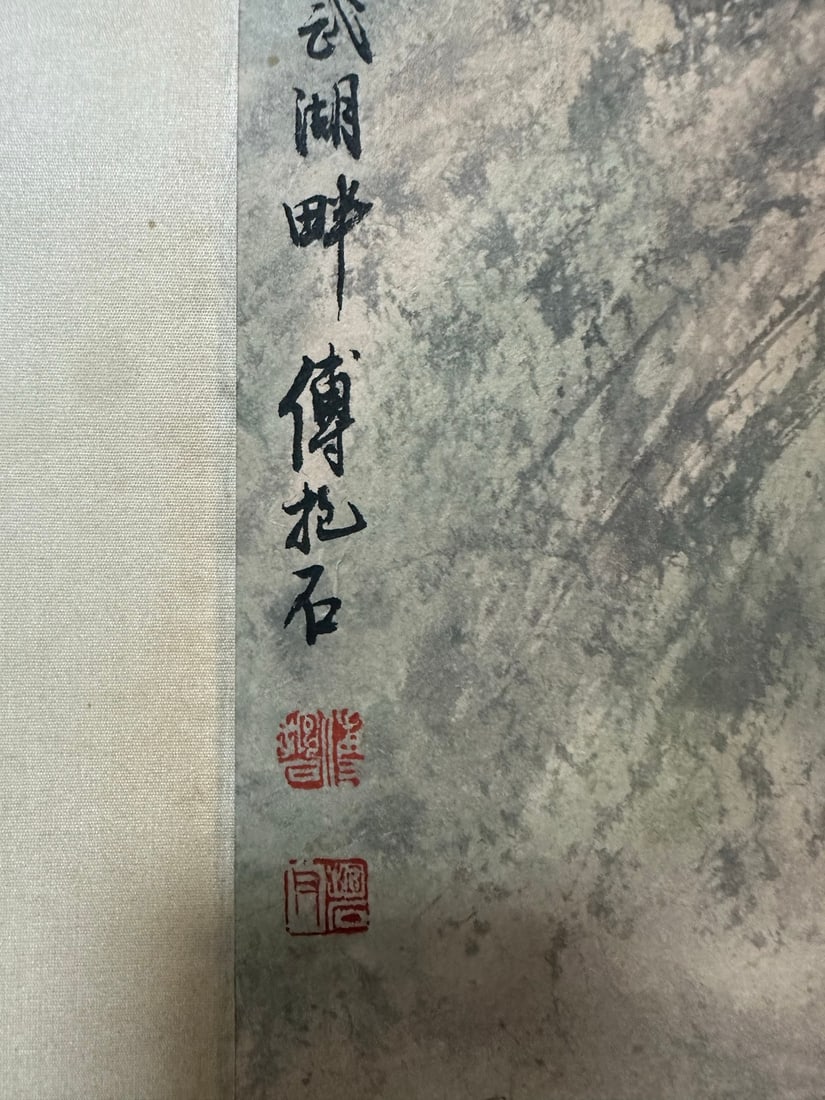 武湖畔傅抱石